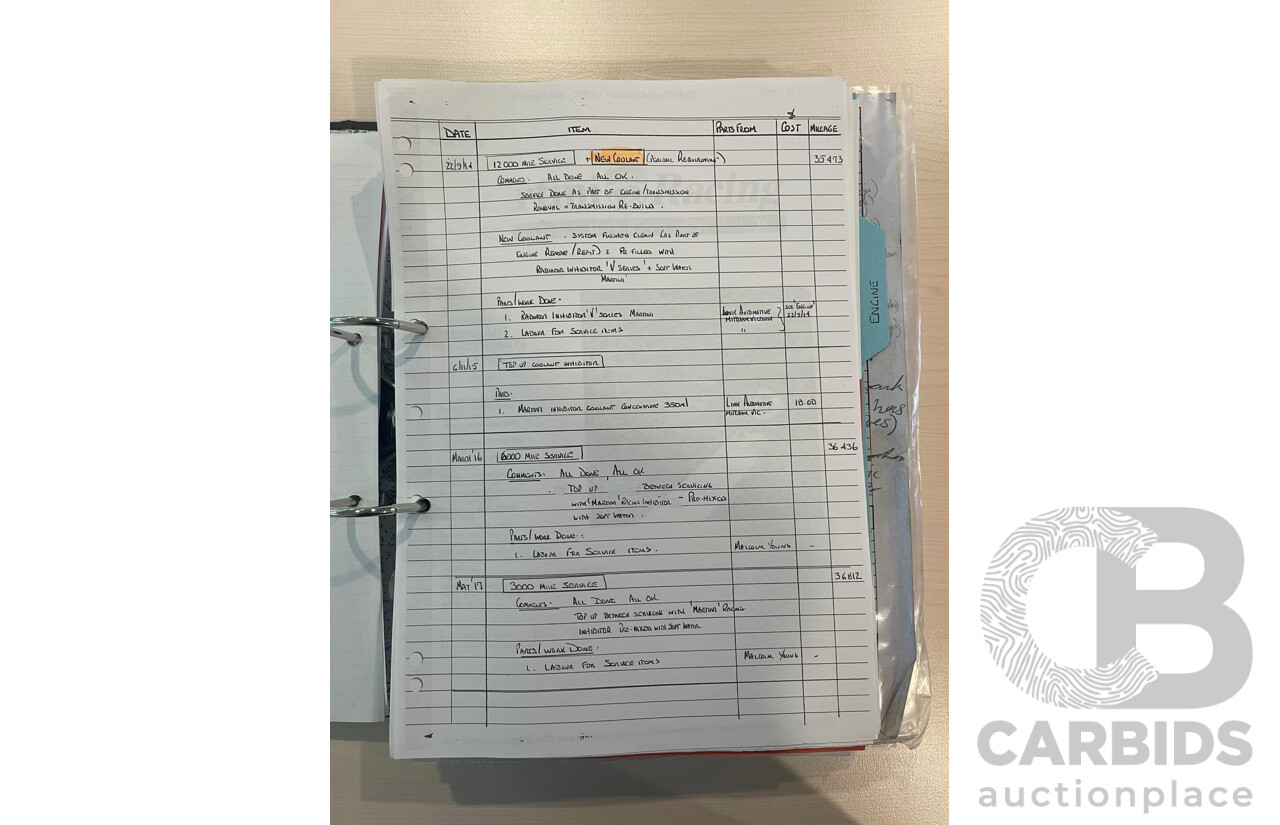 $
DATE ITEM PARTS FROM COST MILEAGE
22/9/14 12000 MILE SERVICE + NEW COOLANT 35473
COMMENTS: ALL DONE ALL OK.
SERVICE DONE AS PART OF ENGINE/TRANSMISSION
REMOVAL + TRANSMISSION RE-BUILD.
Racing
NEW COOLANT - SYSTEM FLUSHED CLEAN (AS PART OF
ENGINE REMOVE/REFIT) & RE FILLED WITH
RADIATOR INHIBITOR 'V SERIES' + SOFT WATER
'MARTINI'
PARTS/WORK DONE:
1. RADIATOR INHIBITOR 'V' SERIES MARTINI LINK AUTOMOTIVE SEE 'ENGINE'
MITCHAM VICTORIA 22/9/14
2. LABOUR FOR SERVICE ITEMS "
ENGINE
6/11/15 TOP UP COOLANT INHIBITOR
PARTS:
1. MARTINI INHIBITOR COOLANT CONCENTRATE 350ml LINK AUTOMOTIVE 18.00
MITCHAM VIC.
36436
MARCH '16 6000 MILE SERVICE
COMMENTS: ALL DONE, ALL OK
. TOP UP BETWEEN SERVICING
WITH 'MARTINI' RACING INHIBITOR - PRE-MIXED
WITH SOFT WATER.
PARTS/WORK DONE:
1. LABOUR FOR SERVICE ITEMS. MALCOLM YOUNG -
36812
MAY '17 3000 MILE SERVICE
COMMENTS: ALL DONE ALL OK
TOP UP BETWEEN SERVICING WITH 'MARTINI' RACING
INHIBITOR PRE-MIXED WITH SOFT WATER
PARTS/WORK DONE:
1. LABOUR FOR SERVICE ITEMS MALCOLM YOUNG -
CARBIDS
auctionplace